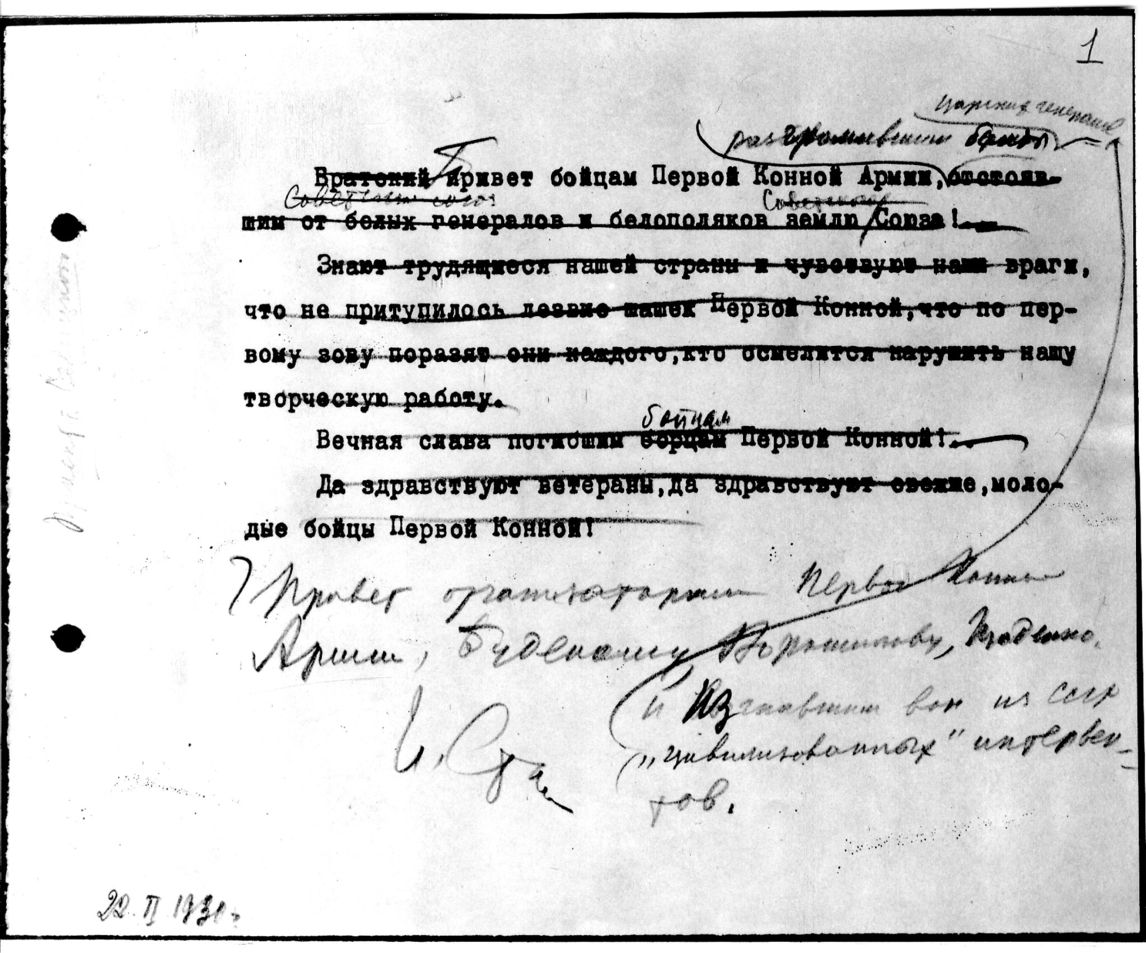 1
царских генералов
разгромившим банды
Братский Привет бойцам Первой Конной Армии, отстояв-
Советский союз Советского
шим от белых генералов и белополяков землю Союза!
Знают трудящиеся нашей страны и чувствуют наши враги,
что не притупилось лезвие шашек Первой Конной, что по пер-
вому зову поразят они каждого, кто осмелится нарушить нашу
творческую работу.
бойцам
Вечная слава погибшим борцам Первой Конной!
Да здравствуют ветераны, да здравствуют свежие, моло-
дые бойцы Первой Конной!
Привет организаторам Первой Конной
Армии, Буденному, Ворошилову, Щаденко.
и изгнавшим вон из СССР
"цивилизованных" интервен-
тов.
И. Ста